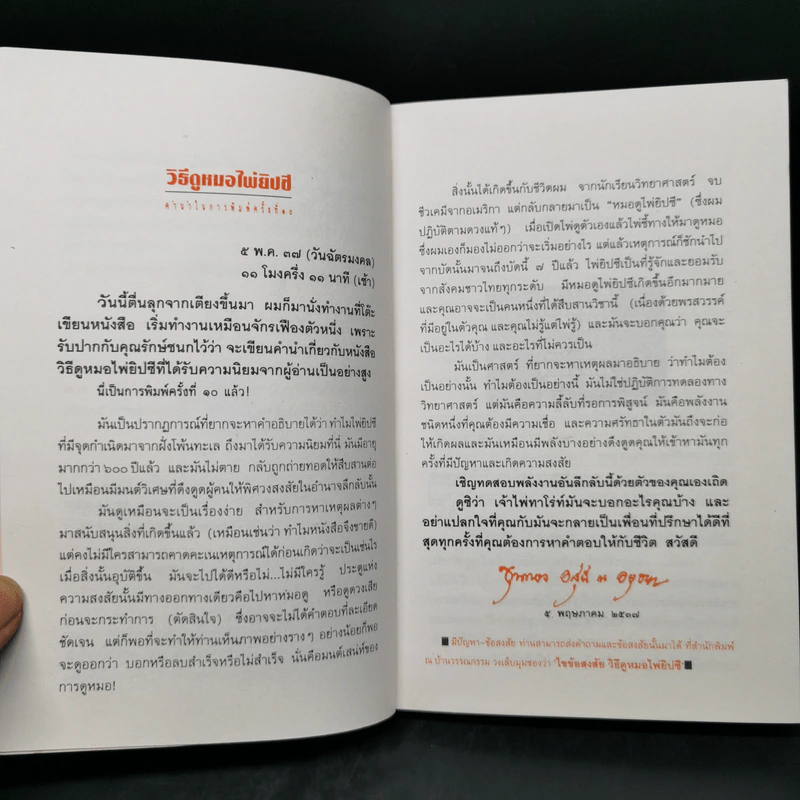 วิธีดูหมอไพ่ยิปซี
คำนำในการพิมพ์ครั้งที่๑๐
๕ พ.ค. ๓๗ (วันฉัตรมงคล)
๑๑ โมงครึ่ง ๑๑ นาที (เช้า)
วันนี้ตื่นลุกจากเตียงขึ้นมา ผมก็มานั่งทำงานที่โต๊ะ
เขียนหนังสือ เริ่มทำงานเหมือนจักรเฟืองตัวหนึ่ง เพราะ
รับปากกับคุณรักษ์ชนกไว้ว่า จะเขียนคำนำเกี่ยวกับหนังสือ
วิธีดูหมอไพ่ยิปซีที่ได้รับความนิยมจากผู้อ่านเป็นอย่างสูง
นี่เป็นการพิมพ์ครั้งที่ ๑๐ แล้ว!
มันเป็นปรากฏการณ์ที่ยากจะหาคำอธิบายได้ว่า ทำไมไพ่ยิปซี
ที่มีจุดกำเนิดมาจากฝั่งโพ้นทะเล ถึงมาได้รับความนิยมที่นี่ มันมีอายุ
มากกว่า ๖๐๐ ปีแล้ว และมันไม่ตาย กลับถูกถ่ายทอดให้สืบสานต่อ
ไปเหมือนมีมนต์วิเศษที่ดึงดูดผู้คนให้พิศวงสงสัยในอำนาจลึกลับนั้น
มันดูเหมือนจะเป็นเรื่องง่าย สำหรับการหาเหตุผลต่างๆ
มาสนับสนุนสิ่งที่เกิดขึ้นแล้ว (เหมือนเช่นว่า ทำไมหนังสือจึงขายดี)
แต่คงไม่มีใครสามารถคาดคะเนเหตุการณ์ได้ก่อนเกิดว่าจะเป็นเช่นไร
เมื่อสิ่งนั้นอุบัติขึ้น มันจะไปได้ดีหรือไม่...ไม่มีใครรู้ ประตูแห่ง
ความสงสัยนั้นมีทางออกทางเดียวคือไปหาหมอดู หรือดูดวงเสีย
ก่อนจะกระทำการ (ตัดสินใจ) ซึ่งอาจจะไม่ได้คำตอบที่ละเอียด
ชัดเจน แต่ก็พอที่จะทำให้ท่านเห็นภาพอย่างรางๆ อย่างน้อยก็พอ
จะดูออกว่า บอกหรือลบสำเร็จหรือไม่สำเร็จ นั่นคือมนต์เสน่ห์ของ
การดูหมอ!
สิ่งนั้นได้เกิดขึ้นกับชีวิตผม จากนักเรียนวิทยาศาสตร์ จบ
ชีวเคมีจากอเมริกา แต่กลับกลายมาเป็น "หมอดูไพ่ยิปซี" (ซึ่งผม
ปฏิบัติตามดวงแท้ๆ) เมื่อเปิดไพ่ดูตัวเองแล้วไพ่ชี้ทางให้มาดูหมอ
ซึ่งผมเองก็มองไม่ออกว่าจะเริ่มอย่างไร แต่แล้วเหตุการณ์ก็ชักนำไป
จากบัดนั้นมาจนถึงบัดนี้ ๗ ปีแล้ว ไพ่ยิปซีเป็นที่รู้จักและยอมรับ
จากสังคมชาวไทยทุกระดับ มีหมอดูไพ่ยิปซีเกิดขึ้นอีกมากมาย
และคุณอาจจะเป็นคนหนึ่งที่ได้สืบสานวิชานี้ (เนื่องด้วยพรสวรรค์
ที่มีอยู่ในตัวคุณ และคุณไม่รู้แต่ไพ่รู้) และมันจะบอกคุณว่า คุณจะ
เป็นอะไรได้บ้าง และอะไรที่ไม่ควรเป็น
มันเป็นศาสตร์ ที่ยากจะหาเหตุผลมาอธิบาย ว่าทำไมต้อง
เป็นอย่างนั้น ทำไมต้องเป็นอย่างนี้ มันไม่ใช่ปฏิบัติการทดลองทาง
วิทยาศาสตร์ แต่มันคือความลี้ลับที่รอการพิสูจน์ มันคือพลังงาน
ชนิดหนึ่งที่คุณต้องมีความเชื่อ และความศรัทธาในตัวมันถึงจะก่อ
ให้เกิดผลและมันเหมือนมีพลังบางอย่างดึงดูดคุณให้เข้าหามันทุก
ครั้งที่มีปัญหาและเกิดความสงสัย
เชิญทดสอบพลังงานอันลึกลับนี้ด้วยตัวของคุณเองเถิด
ดูซิว่า เจ้าไพ่ทาโร่ท์มันจะบอกอะไรคุณบ้าง และ
อย่าแปลกใจที่คุณกับมันจะกลายเป็นเพื่อนที่ปรึกษาได้ดีที่
สุดทุกครั้งที่คุณต้องการหาคำตอบให้กับชีวิต สวัสดี
๕ พฤษภาคม ๒๕๓๗
■ มีปัญหา-ข้อสงสัย ท่านสามารถส่งคำถามและข้อสงสัยนั้นมาได้ ที่สำนักพิมพ์
ณ บ้านวรรณกรรม วงเล็บมุมซองว่า 'ไขข้อสงสัย วิธีดูหมอไพ่ยิปซี' ■